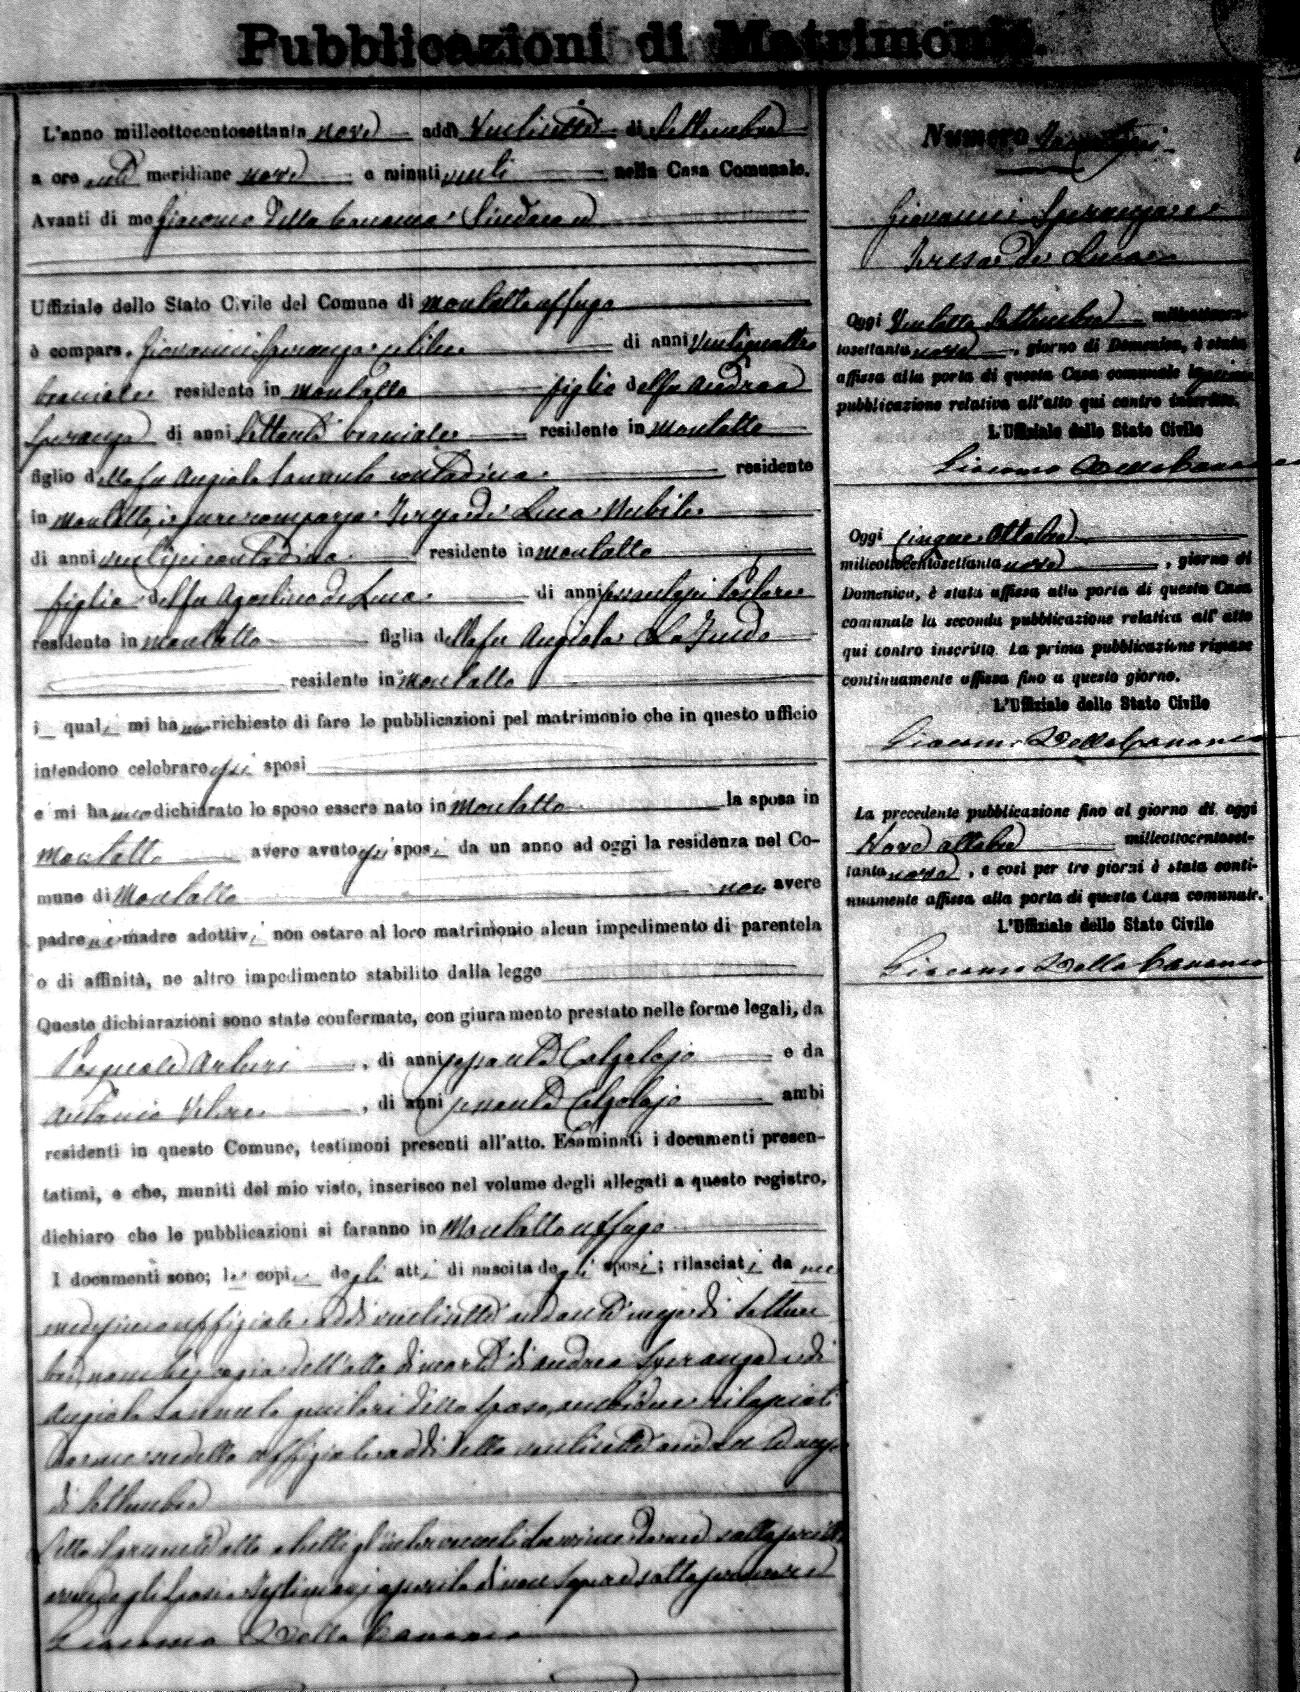 Pubblicazioni di Matrimonio.
L'anno milleottocentosettanta nove addì Ventisette di Settembre
a ore anti meridiane nove e minuti venti nella Casa Comunale.
Avanti di me Giacomo Della Cananea Sindaco
Uffiziale dello Stato Civile del Comune di Montalto uffugo
è compars. Giovanni Speranza celibe di anni ventiquattro
bracciale residente in Montalto figlio del fu Andrea
Speranza di anni Settanta bracciale residente in Montalto
figlio della fu Angiola contadina residente
in Montalto, è pure comparsa Teresa de Luca Nubile
di anni ventisei contadina residente in Montalto
figlia del fu Agostino de Luca di anni residente in Montalto figlia della fu Angiola
residente in Montalto
i quali mi hanno richiesto di fare le pubblicazioni pel matrimonio che in questo ufficio
intendono celebrare essi sposi
e mi hanno dichiarato lo sposo essere nato in Montalto la sposa in
Montalto avere avuto essi sposi da un anno ad oggi la residenza nel Co-
mune di Montalto non avere
padre nè madre adottivi non ostare al loro matrimonio alcun impedimento di parentela
o di affinità, ne altro impedimento stabilito dalla legge
Queste dichiarazioni sono state confermate, con giuramento prestato nelle forme legali, da
Pasquale Arturi, di anni sessanta Calzolajo e da
Antonio, di anni Calzolajo ambi
residenti in questo Comune, testimoni presenti all'atto. Esaminati i documenti presen-
tatimi, e che, muniti del mio visto, inserisco nel volume degli allegati a questo registro,
dichiaro che le pubblicazioni si faranno in Montalto uffugo
I documenti sono; le copie degli atti di nascita degli sposi; rilasciati da me
medesimo uffiziale addì ventisette andante mese di Settem
bre, nonchè copia dell'atto di morte di Andrea Speranza e di
Angiola genitori dello sposo, ambidue rilasciati
da me medesimo uffiziale addì detto ventisette andante mese
di Settembre
Letto il presente atto a tutti gl'intervenuti
degli sposi e testimonj sottoscrivere
Giacomo Della Cananea
Numero
Giovanni Speranza e
Teresa de Luca
Oggi Ventotto Settembre milleottocen-
tosettantanove, giorno di Domenica, è stata
affissa alla porta di questa Casa comunale la prima
pubblicazione relativa all'atto qui contro inscritto.
L'Uffiziale dello Stato Civile
Giacomo Della Cananea
Oggi cinque Ottobre
milleottocentosettantanove, giorno di
Domenica, è stata affissa alla porta di questa Casa
comunale la seconda pubblicazione relativa all'atto
qui contro inscritto. La prima pubblicazione rimase
continuamente affissa fino a questo giorno.
L'Uffiziale dello Stato Civile
Giacomo Della Cananea
La precedente pubblicazione fino al giorno di oggi
Nove ottobre milleottocentoset-
tantanove, e così per tre giorni è stata conti-
nuamente affissa alla porta di questa Casa comunale.
L'Uffiziale dello Stato Civile
Giacomo Della Cananea